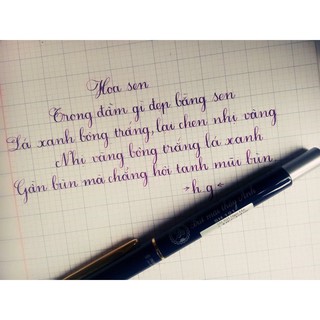 Hoa sen
Trong đầm gì đẹp bằng sen
Lá xanh bông trắng, lại chen nhị vàng
Nhị vàng bông trắng lá xanh
Gần bùn mà chẳng hôi tanh mùi bùn
~h.g~